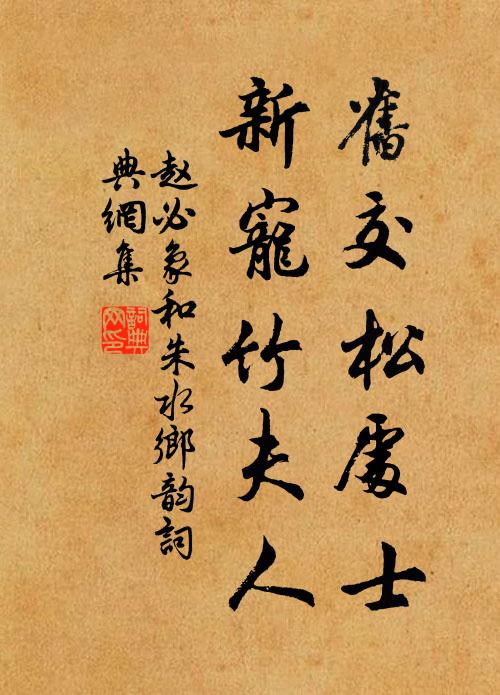 舊交松處士
新寵竹夫人
趙必象和朱水鄉韵詞
典網集
詞典網印